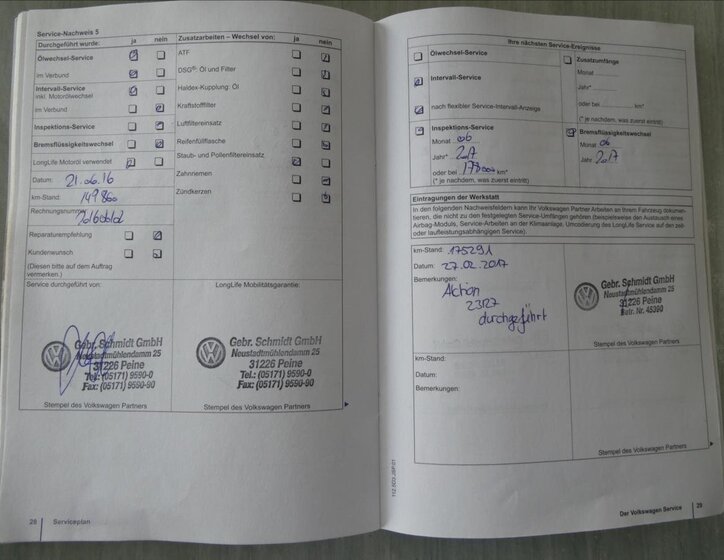 Service-Nachweis 5
Durchgeführt wurde: ja nein
Ölwechsel-Service
im Verbund
Intervall-Service
inkl. Motorölwechsel
im Verbund
Inspektions-Service
Bremsflüssigkeitswechsel
LongLife Motoröl verwendet
Datum: 21.06.16
km-Stand: 149860
Rechnungsnummer
Reparaturempfehlung
Kundenwunsch
(Diesen bitte auf dem Auftrag
vermerken.)
Zusatzarbeiten – Wechsel von: ja nein
ATF
DSG®: Öl und Filter
Haldex-Kupplung: Öl
Kraftstofffilter
Luftfiltereinsatz
Reifenfüllflasche
Staub- und Pollenfiltereinsatz
Zahnriemen
Zündkerzen
Service durchgeführt von:
Gebr. Schmidt GmbH
Neustadtmühlendamm 25
31226 Peine
Tel.: (05171) 9590-0
Fax: (05171) 9590-90
Stempel des Volkswagen Partners
LongLife Mobilitätsgarantie:
Gebr. Schmidt GmbH
Neustadtmühlendamm 25
31226 Peine
Tel.: (05171) 9590-0
Fax: (05171) 9590-90
Stempel des Volkswagen Partners
28 Serviceplan
Ihre nächsten Service-Ereignisse
Ölwechsel-Service
Intervall-Service
nach flexibler Service-Intervall-Anzeige
Inspektions-Service
Monat 06
Jahr* 2017
oder bei 178000 km*
(* je nachdem, was zuerst eintritt)
Zusatzumfänge
Monat
Jahr*
oder bei km*
(* je nachdem, was zuerst eintritt)
Bremsflüssigkeitswechsel
Monat 06
Jahr 2017
Eintragungen der Werkstatt
In den folgenden Nachweisfeldern kann Ihr Volkswagen Partner Arbeiten an Ihrem Fahrzeug dokumen-
tieren, die nicht zu den festgelegten Service-Umfängen gehören (beispielsweise den Austausch eines
Airbag-Moduls, Service-Arbeiten an der Klimaanlage, Umcodierung des LongLife Service auf den zeit-
oder laufleistungsabhängigen Service).
km-Stand: 175291
Datum: 27.02.2017
Bemerkungen:
Aktion
23R7
durchgeführt
Gebr. Schmidt GmbH
Neustadtmühlendamm 25
31226 Peine
Betr. Nr. 45360
Stempel des Volkswagen Partners
km-Stand:
Datum:
Bemerkungen:
Stempel des Volkswagen Partners
Der Volkswagen Service 29